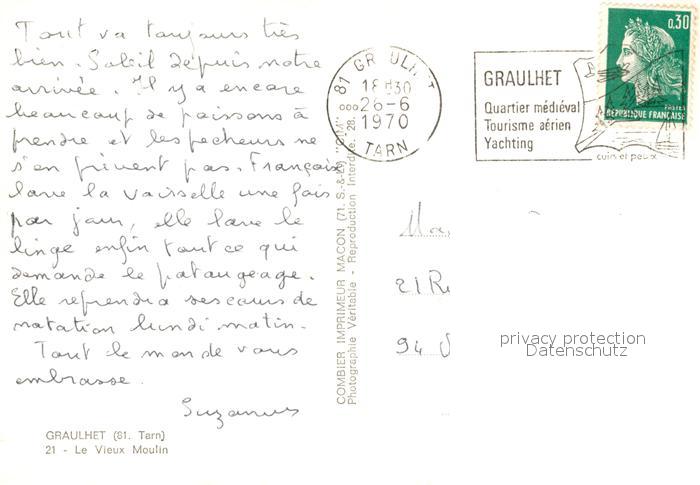 Tout va toujours très
bien. Soleil depuis notre
arrivée. Il y a encore
beaucoup de poissons à
prendre et les pecheurs ne
s'en privent pas. Françoise
lave la vaisselle une fois
par jour, elle lave le
linge enfin tout ce qui
demande le pataugeage.
Elle reprendra ses cours de
natation lundi matin.
Tout le monde vous
embrasse.
GRAULHET (81. Tarn)
21 - Le Vieux Moulin
COMBIER IMPRIMEUR MACON (71. S.-&-L.) "CIM"
Photographie Véritable - Reproduction Interdite. 28.
81 GRAULHET
18H30
26-6
1970
TARN
GRAULHET
Quartier médiéval
Tourisme aérien
Yachting
cuirs et peaux
0,30
POSTES
REPUBLIQUE FRANÇAISE
21 R
94
privacy protection
Datenschutz